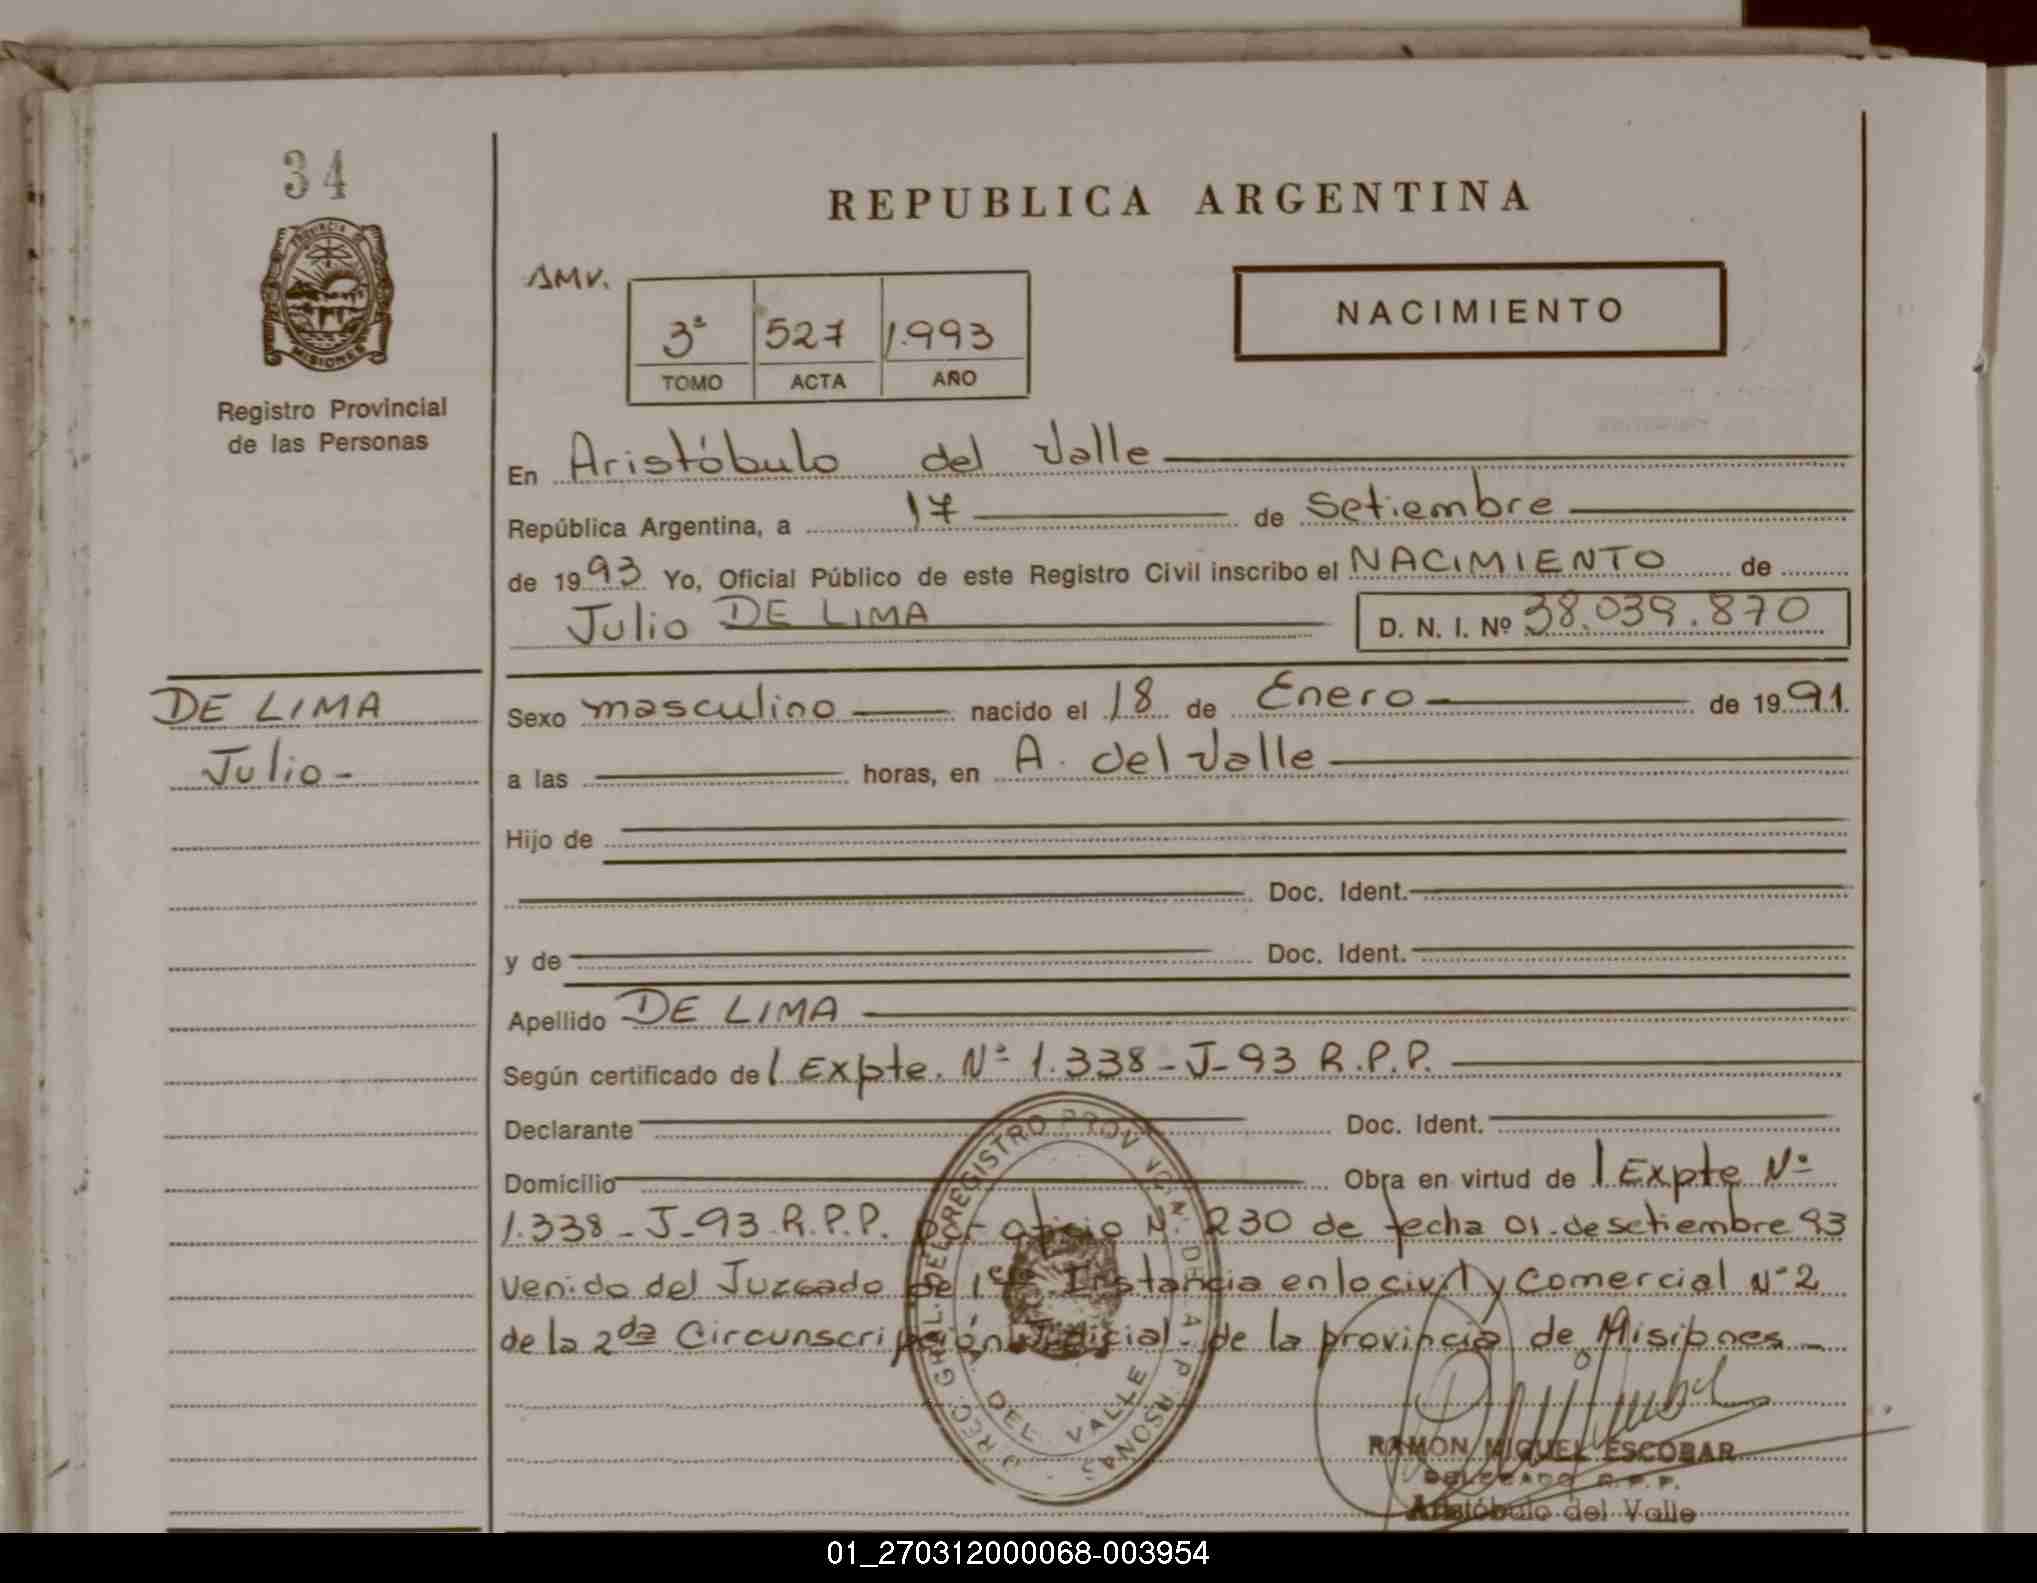 34
PROVINCIA DE
MISIONES
Registro Provincial
de las Personas
REPUBLICA ARGENTINA
AMV.
3ª 527 1.993
TOMO ACTA AÑO
NACIMIENTO
En Aristóbulo del Valle
República Argentina, a 17 de Setiembre
de 1993 Yo, Oficial Público de este Registro Civil inscribo el NACIMIENTO de
Julio DE LIMA D. N. I. Nº 38.039.870
DE LIMA
Julio-
Sexo masculino nacido el 18 de Enero de 1991.
a las horas, en A. del Valle
Hijo de
Doc. Ident.
y de Doc. Ident.
Apellido DE LIMA
Según certificado del Expte. Nº 1.338-J-93 R.P.P.
Declarante Doc. Ident.
Domicilio Obra en virtud del Expte Nº
1.338-J-93 R.P.P. por oficio Nº 230 de fecha 01.de setiembre 93
venido del Juzgado de 1era Instancia en lo civil y Comercial Nº 2
de la 2da Circunscripción Judicial de la provincia de Misiones-
DEL VALLE
RAMON MIGUEL ESCOBAR
DELEGADO R.P.P.
Aristóbulo del Valle
01_270312000068-003954